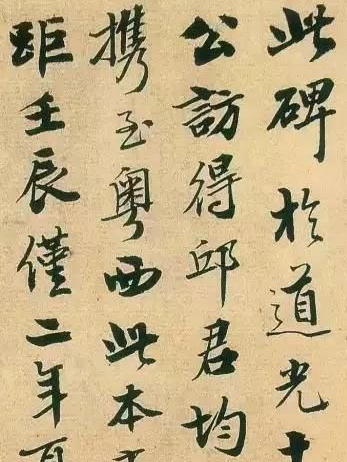 此碑於道光十
公訪得邱君均
攜至粵西此本
距壬辰僅二年